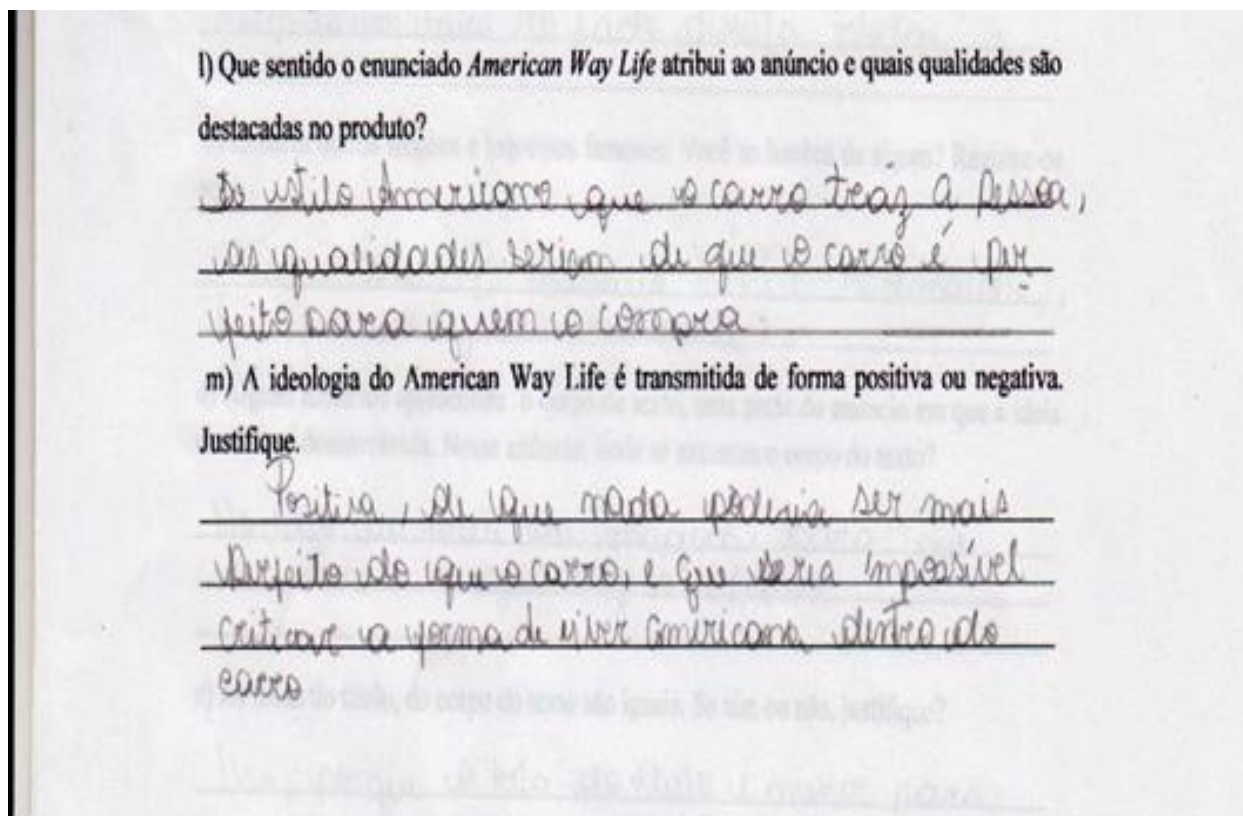 l) Que sentido o enunciado American Way Life atribui ao anúncio e quais qualidades são
destacadas no produto?
Do estilo Americano que o carro traz a pessoa,
as qualidades seriam de que o carro é per
feito para quem o compra.
m) A ideologia do American Way Life é transmitida de forma positiva ou negativa.
Justifique.
Positiva, de que nada poderia ser mais
perfeito do que o carro, e que seria impossível
criticar a forma de viver americana dentro do
carro